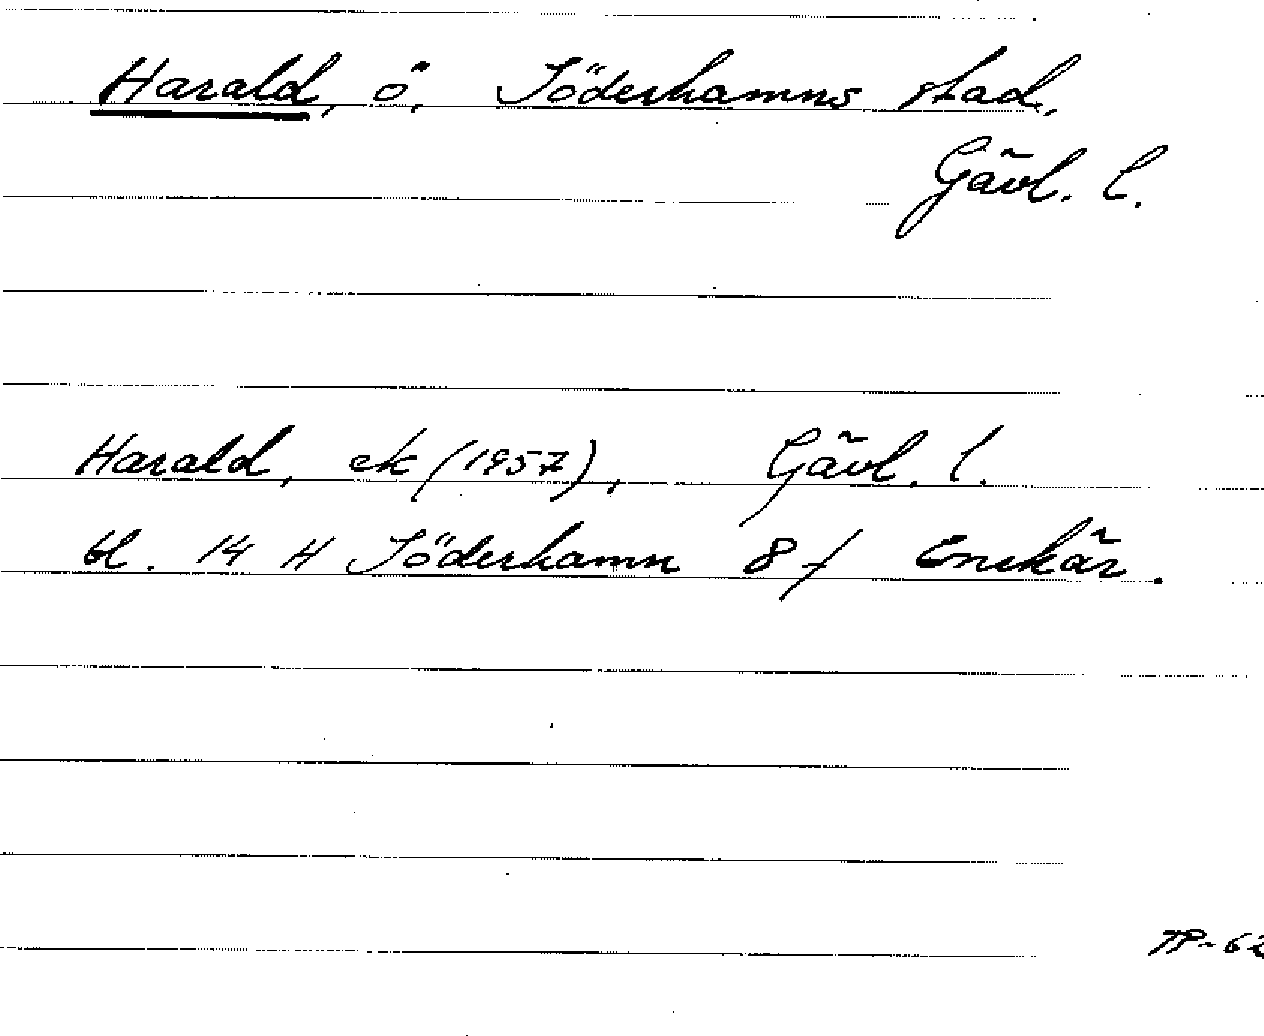 Harald, ö, Söderhamns stad,
Gävl. l.
Harald, ek (1957), Gävl. l.
bl. 14 H Söderhamn 8 f Enskär.
TP-62